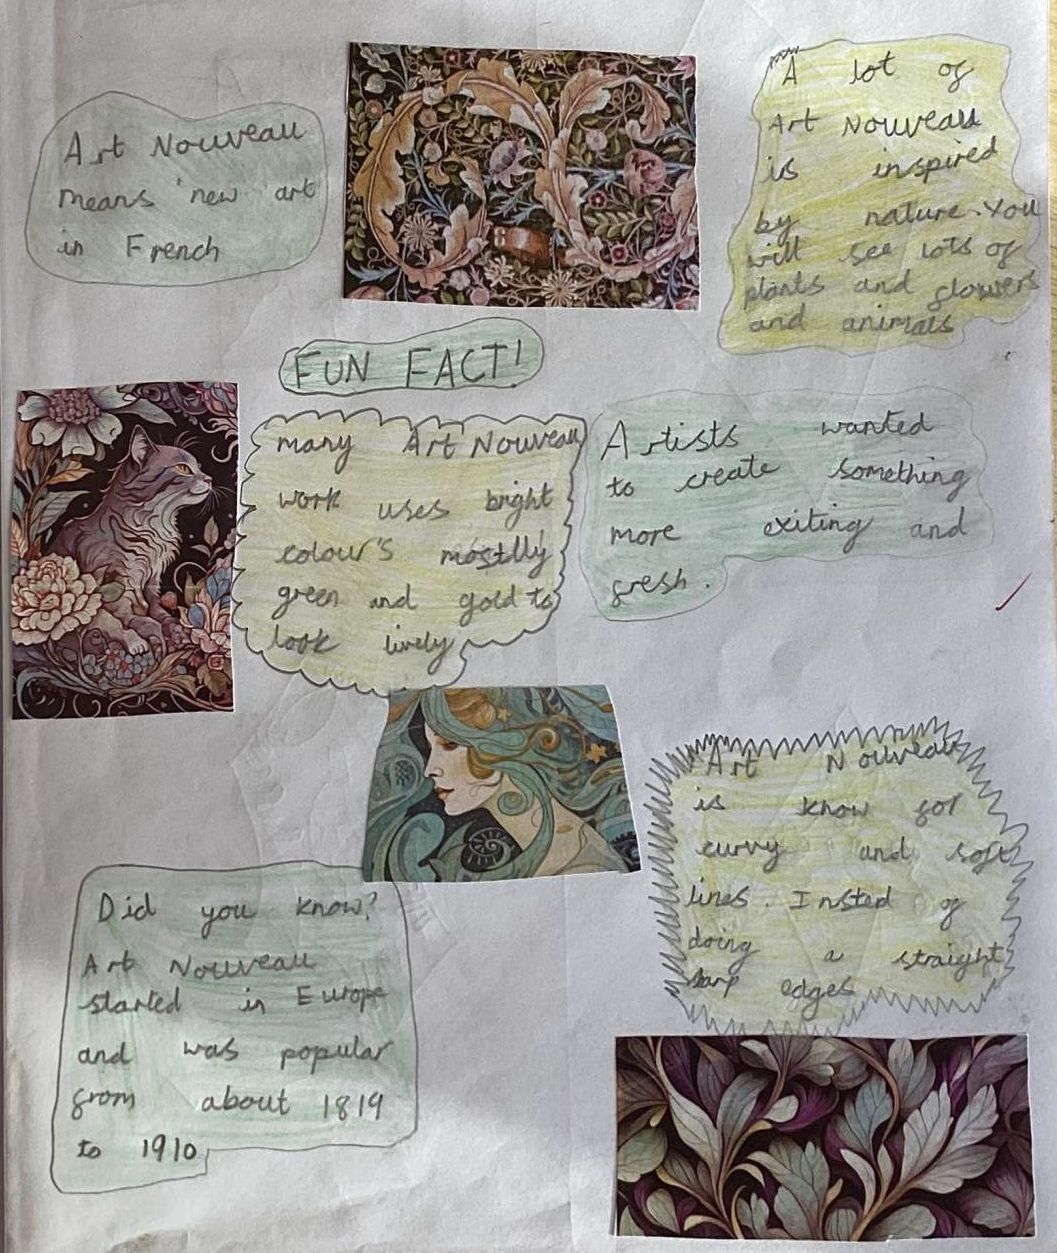 Art Nouveau
means 'new art
in French
A lot of
Art Nouveau
is inspired
by nature. You
will see lots of
plants and flowers
and animals
FUN FACT!
many Art Nouveau
work uses bright
colour's mostlly
green and gold to
look lively
Artists wanted
to create something
more exiting and
fresh.
Art Nouveau
is know for
curvy and soft
lines. Insted of
doing a straight
edges
Did you know?
Art Nouveau
started in Europe
and was popular
from about 1819
to 1910